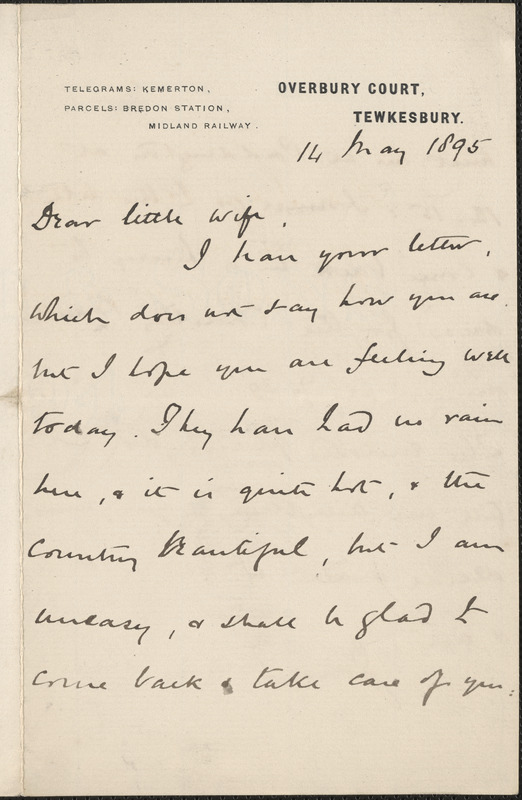 TELEGRAMS: KEMERTON,
PARCELS: BREDON STATION,
MIDLAND RAILWAY.
OVERBURY COURT,
TEWKESBURY.
14 May 1895
Dear little wife,
I have your letter,
which does not say how you are.
but I hope you are feeling well
today. They have had no rain
here, & it is quite hot, & the
country beautiful, but I am
uneasy, & shall be glad to
come back & take care of you: